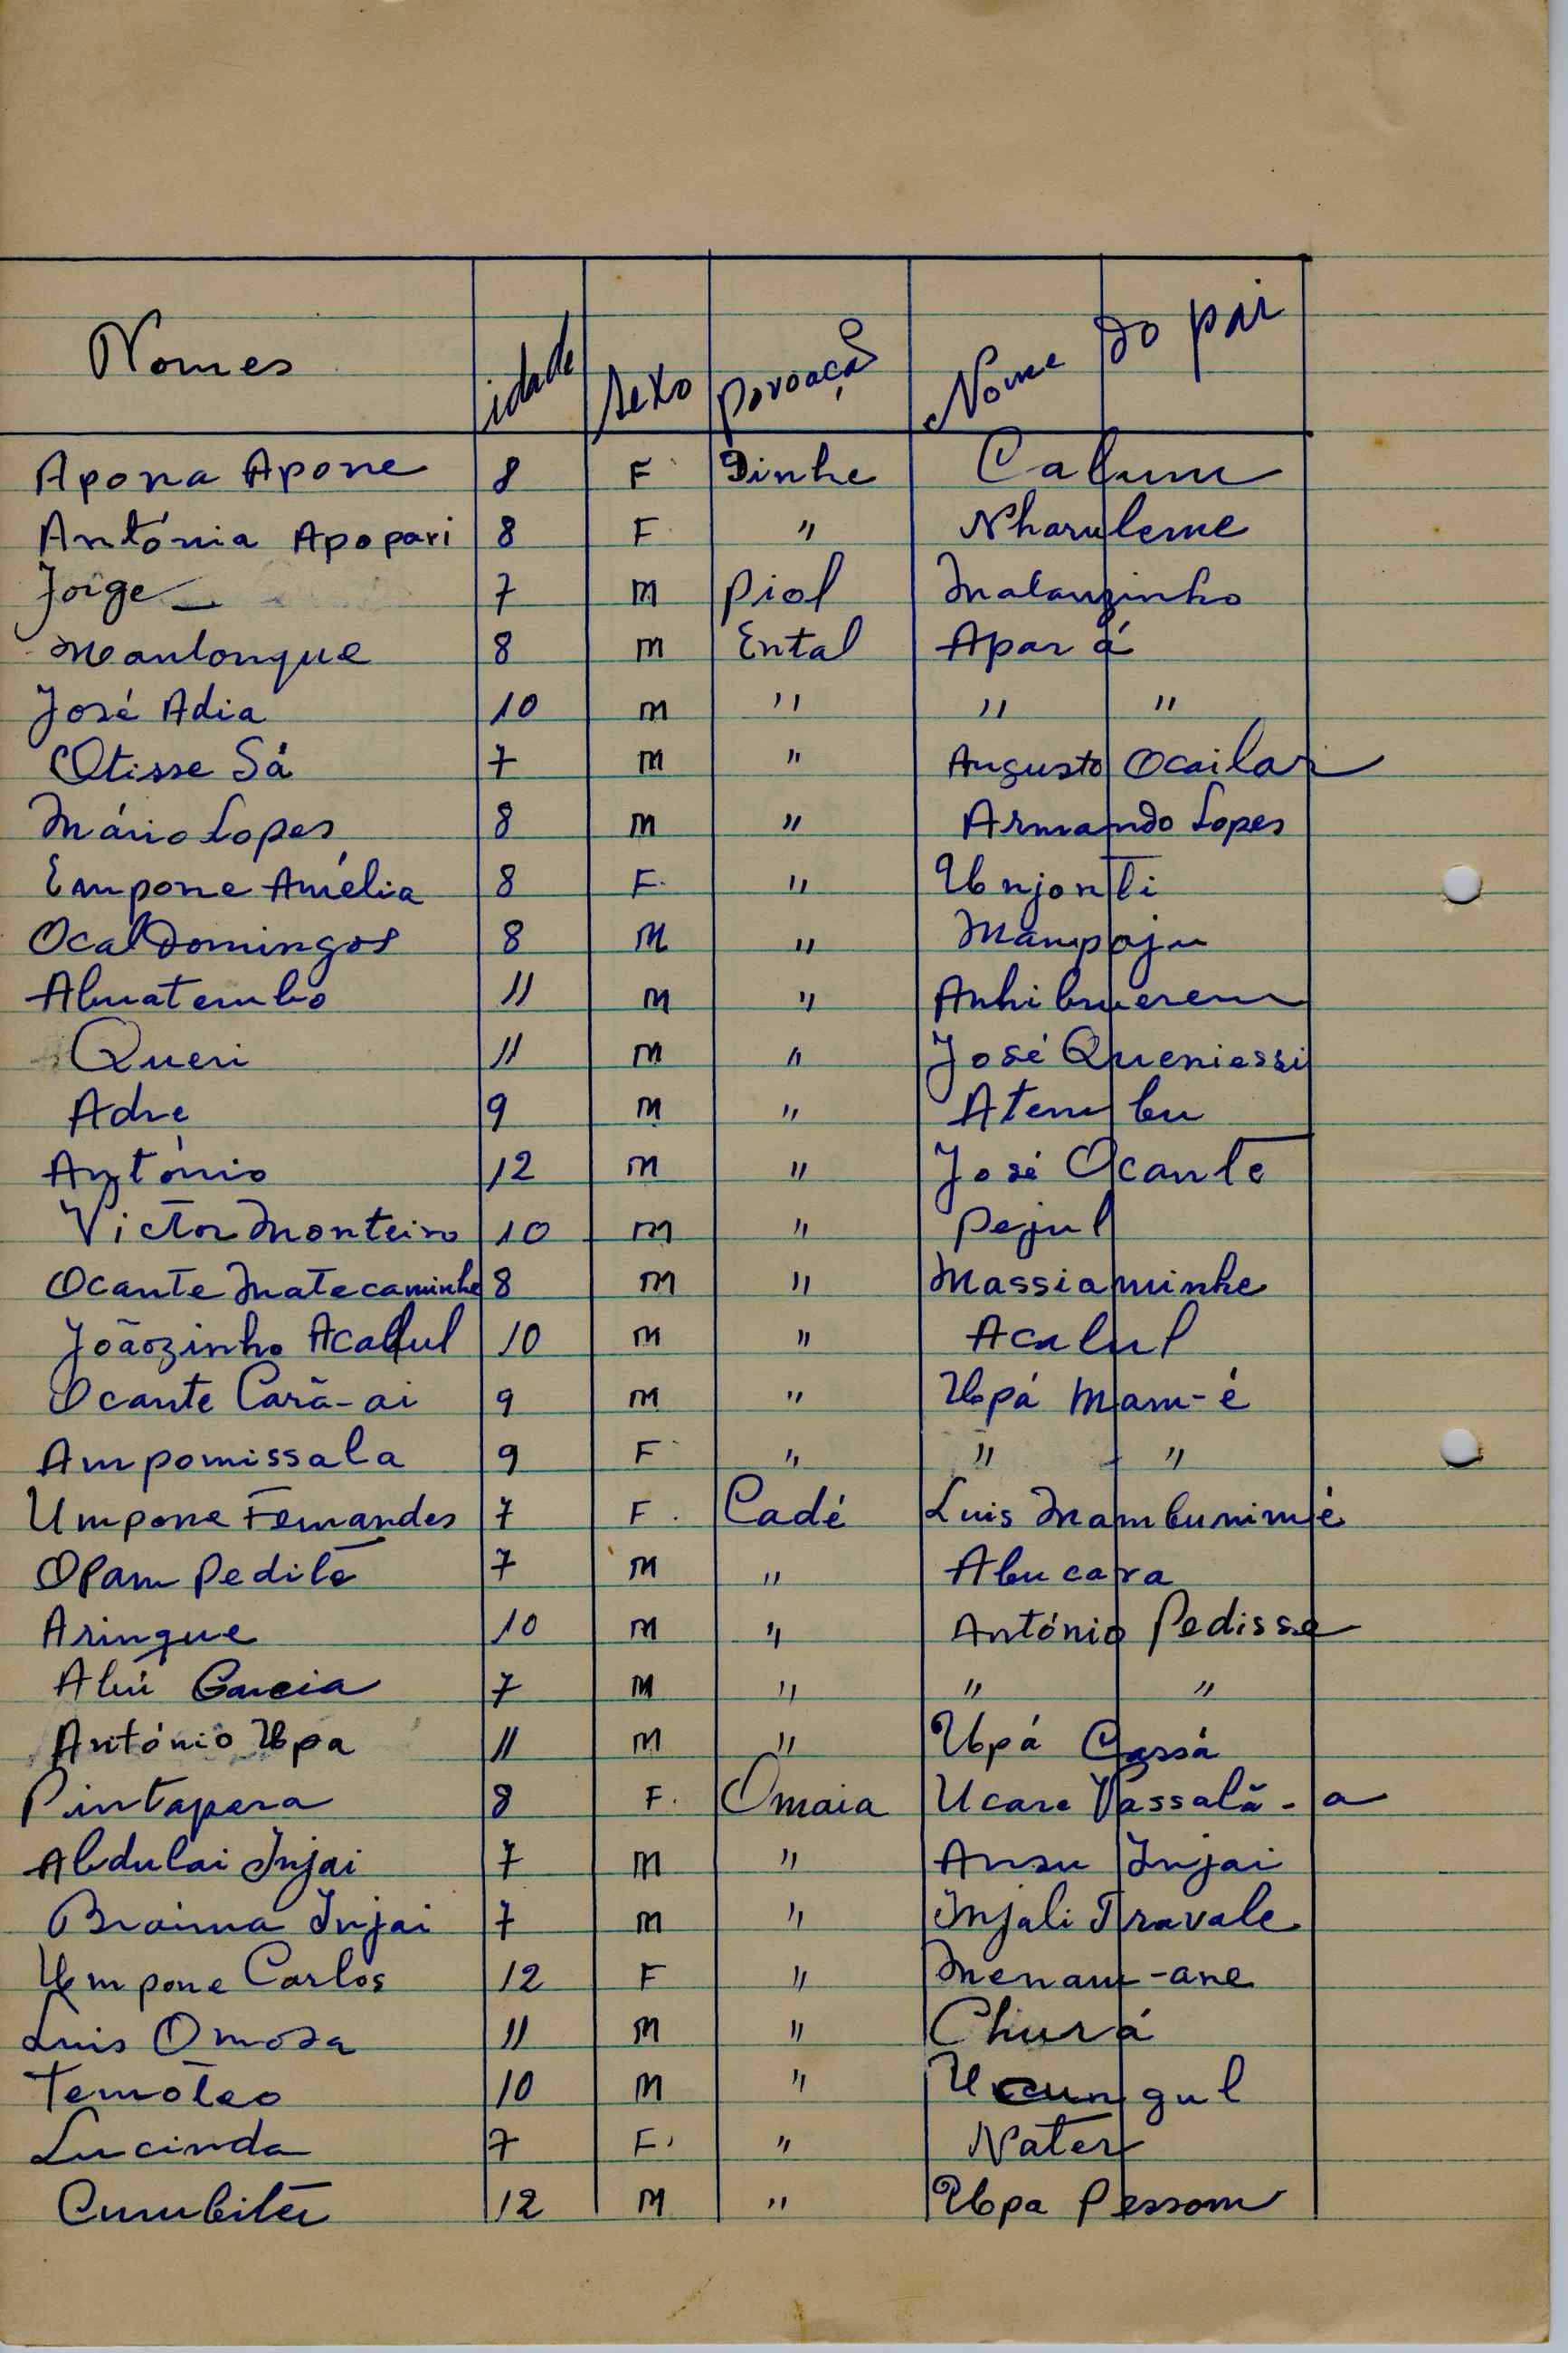 Nomes idade sexo povoação Nome do pai
Apona Apone 8 F Dinhe Cabum
Antónia Apopari 8 F " Nharuleme
Jorge — 7 M Piol Malanzinho
Manlonque 8 M Ental Apará
José Adia 10 M " " "
Otisse Sá 7 M " Augusto Ocailar
Mário Lopes 8 M " Armando Lopes
Empone Amélia 8 F. " Unjonti
Ocal Domingos 8 M " Mampoju
Abuatembo 11 M "
Queri 11 M " José Queniessi
Adre 9 M " Atembu
António 12 M " José Ocante
Victor Monteiro 10 M " Pejul
Ocante Matecaminhe 8 M " Massiaminhe
Joãozinho Acabul 10 M " Acabul
Ocante Carã-ai 9 M " Upá Mam-é
Ampomissala 9 F " " "
Umpone Fernandes 7 F. Cadé Luis Mambunimé
Opam Peditê 7 M " Abucara
Aringue 10 M " António Pedisse
Abú Garcia 7 M " " "
António Upa 11 M " Upá Cassá
Pintapera 8 F. Omaia Ucare Vassalã-a
Abdulai Injai 7 M " Ansu Injai
Braima Injai 7 M " Injali Travale
Umpone Carlos 12 F " Menam-ane
Luis Omosa 11 M " Churá
Temóteo 10 M " Ucungul
Lucinda 7 F. " Nater
Cumbité 12 M " Upa Pessom